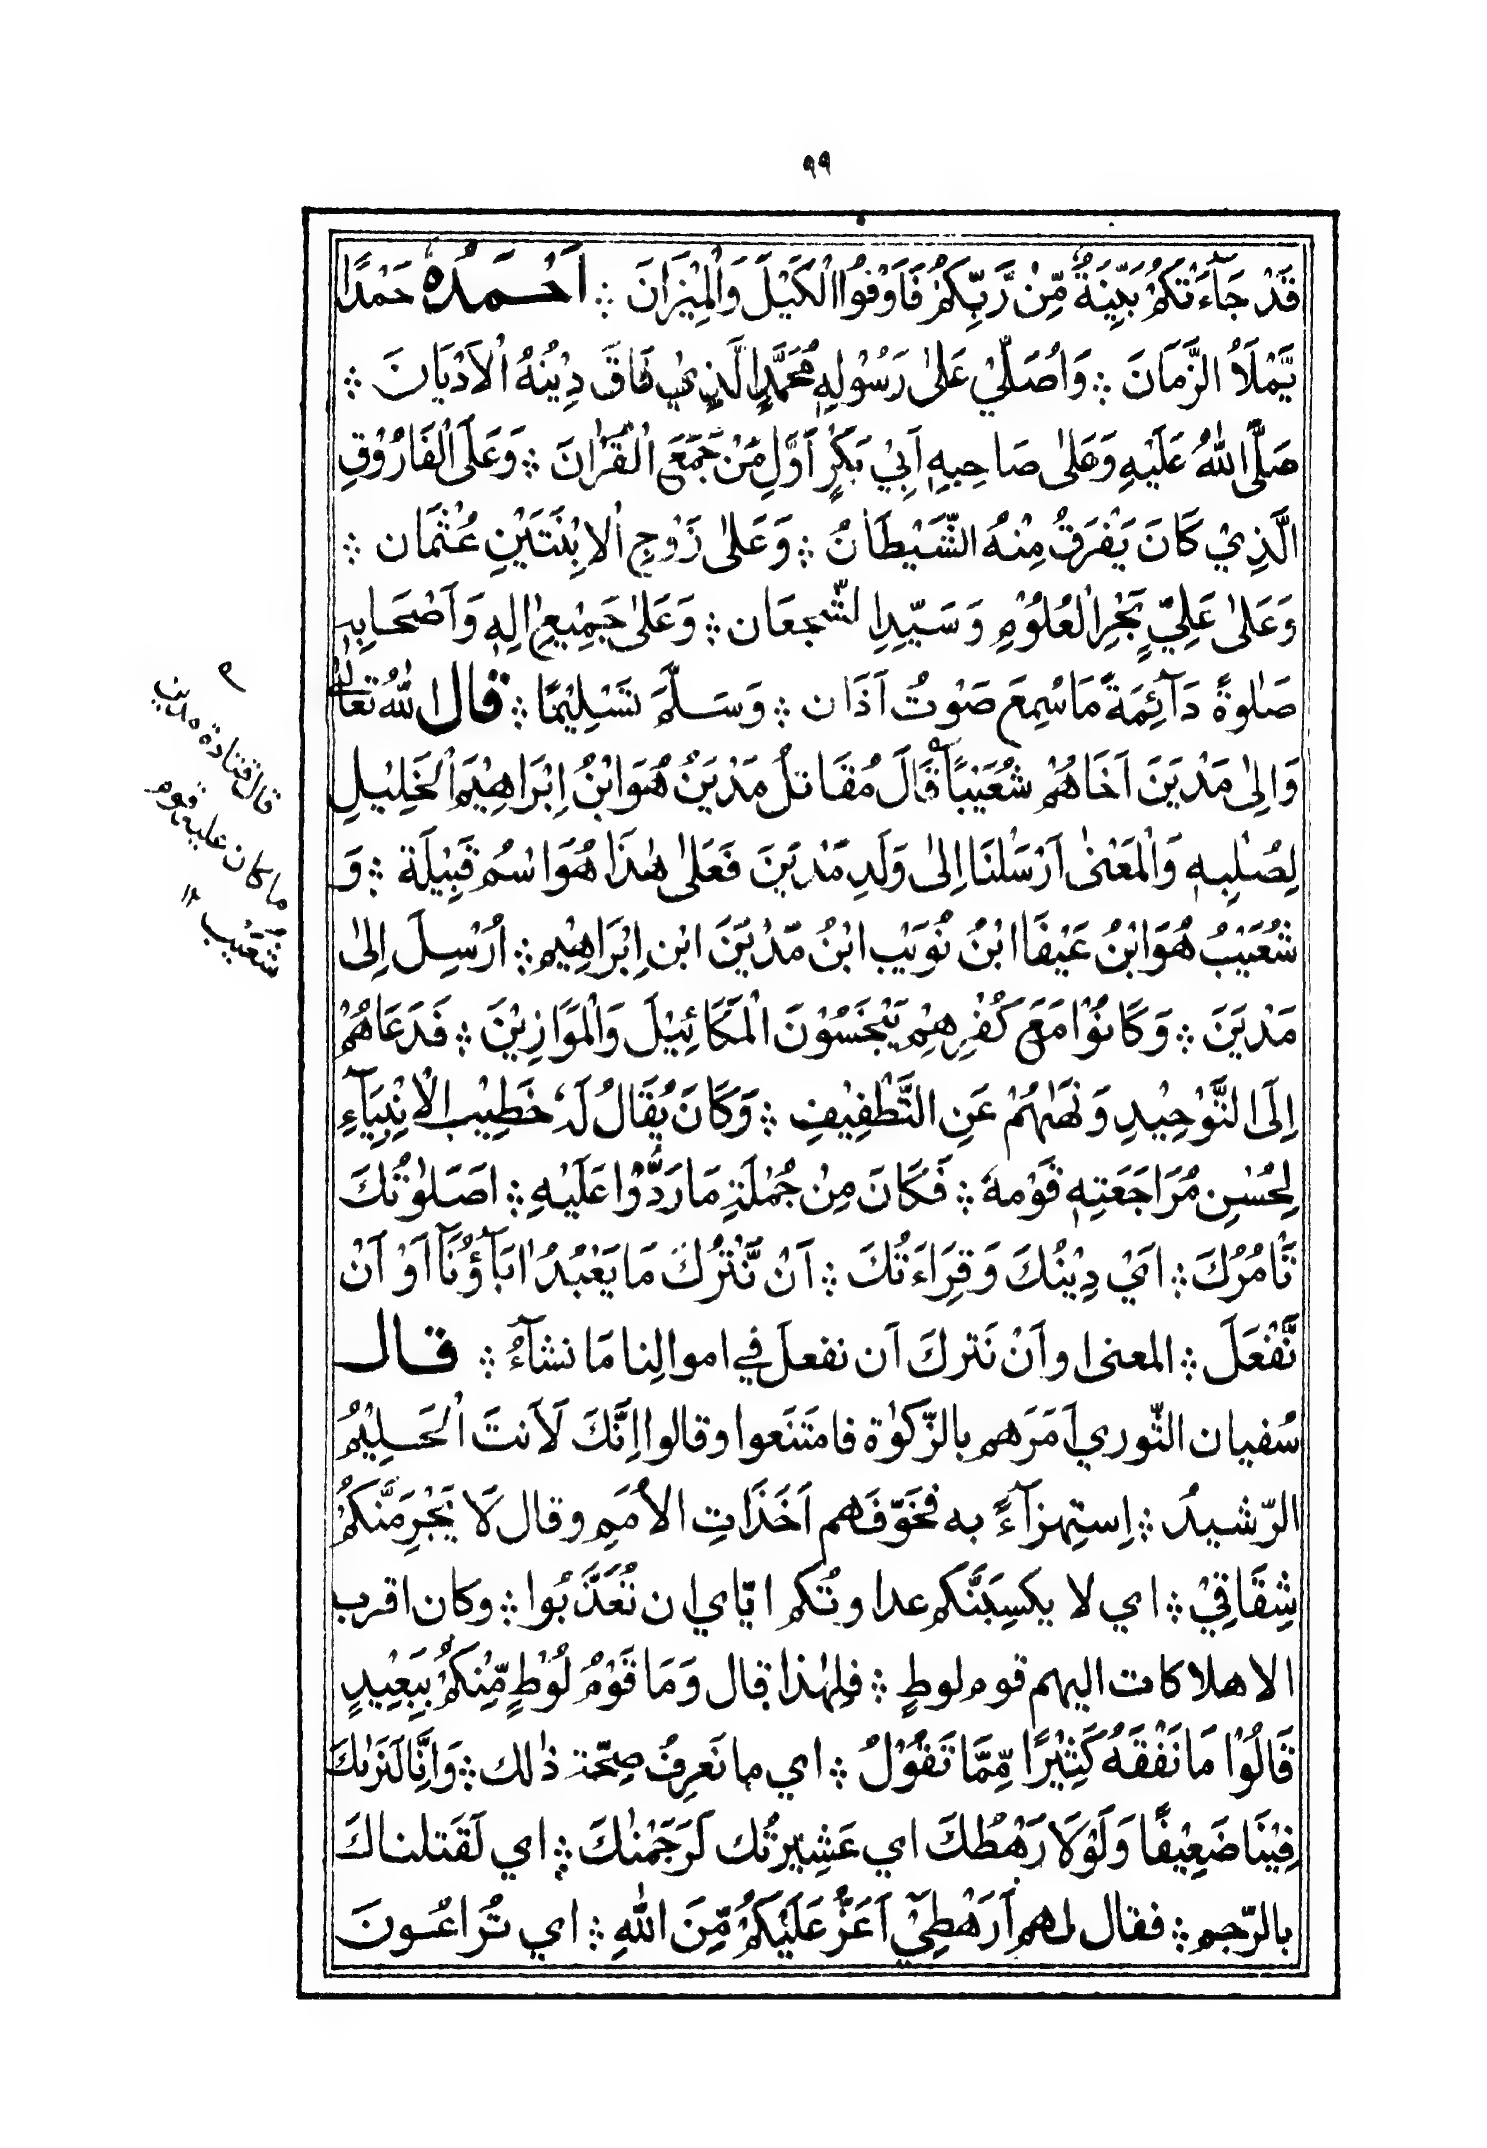 ٩٩
قَدْ جَآءَتْكُمْ بَيِّنَةٌ مِّنْ رَّبِّكُمْ فَاَوْفُوا الْكَيْلَ وَالْمِيْزَانَ ؞ اَحْمَدُهٗ حَمْدًا
يَّمْلَاُ الزَّمَانَ ؞ وَاُصَلِّيْ عَلٰى رَسُوْلِهٖ مُحَمَّدٍ الَّذِيْ فَاقَ دِيْنُهُ الْاَدْيَانَ ؞
صَلَّى اللّٰهُ عَلَيْهِ وَعَلٰى صَاحِبِهٖ اَبِيْ بَكْرٍ اَوَّلِ مَنْ جَمَعَ الْقُرْاٰنَ ؞ وَعَلَى الْفَارُوْقِ
الَّذِيْ كَانَ يَفْرَقُ مِنْهُ الشَّيْطَانُ ؞ وَعَلٰى زَوْجِ الْاِبْنَتَيْنِ عُثْمَان ؞
وَعَلٰى عَلِيٍّ بَحْرِ الْعُلُوْمِ وَسَيِّدِ الشّجعَان ؞ وَعَلٰى جَمِيْعِ اٰلِهٖ وَاَصْحَابِهٖ
صَلٰوةً دَآئِمَةً مَا سُمِعَ صَوْتُ اَذَان ؞ وَسَلَّمَ تَسْلِيْمًا ؞ قال اللّٰهُ تعَالٰى
وَاِلٰى مَدْيَنَ اَخَاهُمْ شُعَيْبًا قَالَ مُقَاتلُ مَدْيَنُ هُوَ ابْنُ اِبْرَاهِيْمَ الْخَلِيْلِ
لِصُلْبِهٖ وَالْمَعْنٰى اَرْسَلْنَا اِلٰى وَلَدِ مَدْيَنَ فَعَلٰى هٰذَا هُوَ اسْمُ قَبِيْلَة ؞ وَ
شُعَيْبُ هُوَ ابْنُ عَيْفَا ابْنُ نُوَيْب ابْنُ مَدْيَنَ ابْن اِبْرَاهِيْم ؞ اُرْسِلَ اِلٰى
مَدْيَنَ ؞ وَكَانُوْا مَعَ كُفْرِهِمْ يَبْخَسُوْنَ الْمَكَائِيْلَ وَالْمَوَازِيْنَ ؞ فَدَعَاهُمْ
اِلَى التَّوْحِيْدِ وَنَهَاهُمْ عَنِ التَّطْفِيْفِ ؞ وَكَانَ يُقَالُ لَهٗ خَطِيْب الْاَنْبِيَآءِ
لِحُسْنِ مُرَاجَعَتِهٖ قَوْمهٗ ؞ فَكَانَ مِنْ جُمْلَةِ مَا رَدُّوْا عَلَيْهِ ؞ اَصَلٰوتُكَ
تَأْمُرُكَ ؞ اَيْ دِيْنُكَ وَقِرَاءَتُكَ ؞ اَنْ نَّتْرُكَ مَا يَعْبُدُ اٰبَآؤُنَا اَوْ اَنْ
نَّفْعَلَ ؞ المعنى او اَنْ نَترك اَن نفعلَ في اموالِنا مَا نشآءُ ؞ قال
سُفيان الثّوري اَمَرَهم بالزّكوٰة فامتَنَعوا وقالوا اِنَّكَ لَاَنتَ الْحَلِيْمُ
الرّشيدُ ؞ اِستِهزآءً به فخَوّفَهم اَخَذَاتِ الاُمَمِ وقال لَا يَجْرِمَنَّكُمْ
شِقَاقِيْ ؞ اي لا يكسِبَنَّكم عداوتُكم ايّاي ان تُعَذَّبُوا ؞ وكان اقرب
الاهلاكات اليهم قوم لوطٍ ؞ فلِهٰذا قال وَمَا قَوْمُ لُوْطٍ مِّنْكُمْ بِبَعِيْدٍ
قَالُوْا مَا نَفْقَهُ كَثِيْرًا مِّمَّا تَقُوْلُ ؞ اي ما نَعرِفُ صِحّة ذٰلك ؞ وَاِنَّا لَنَرٰىكَ
فِيْنَا ضَعِيْفًا وَلَوْلَا رَهْطُكَ اي عَشِيرتُك لَرَجَمْنٰكَ ؞ اي لَقَتلناكَ
بالرّجم ؞ فقال لهم اَرَهْطِيْٓ اَعَزُّ عَلَيْكُمْ مِّنَ اللّٰهِ ؞ اي تُراعُونَ
قال قتادة مدين
ما كان عليه قوم
شُعَيْب ١٢